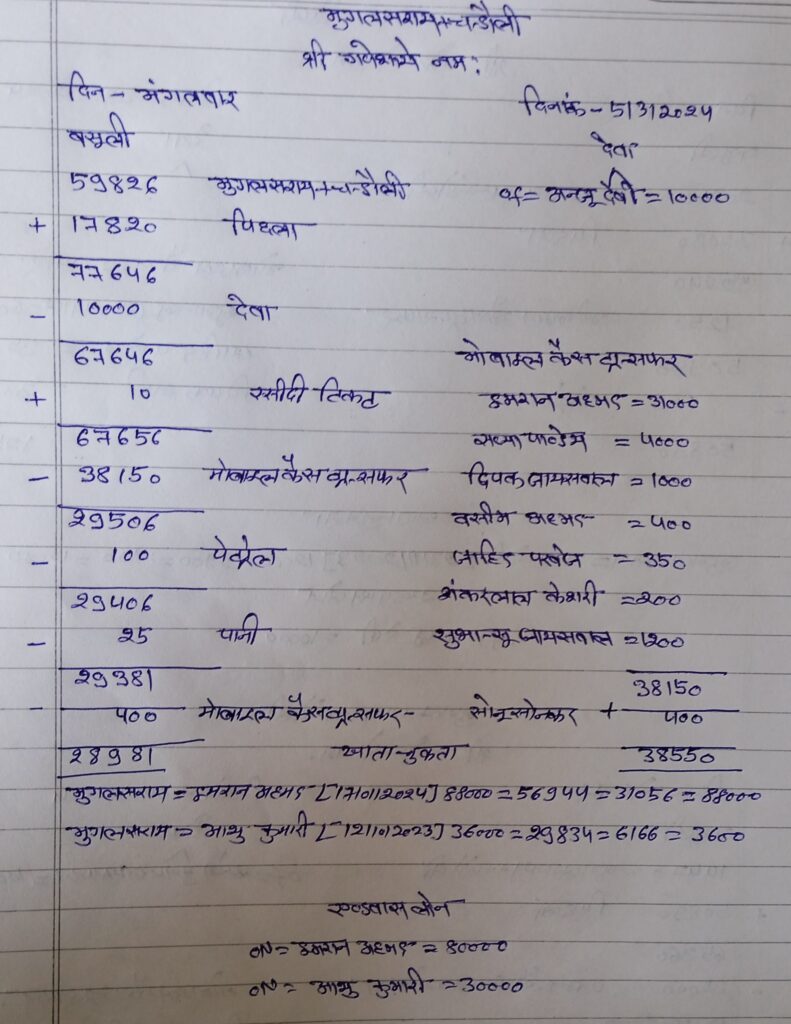 मुगलसराय+चन्दौली
श्री गणेशाये नमः
दिन - मंगलवार दिनांक - 5/3/2024
वसूली देवा
59826 मुगलसराय+चन्दौली of= अन्जू देवी = 10000
+ 17820 पिछला
77646
- 10000 देवा
67646 मोबाइल कैस ट्रान्सफर
+ 10 रसीदी टिकट इमरान अहमद = 31000
67656 सध्या पाण्डेय = 4000
- 38150 मोबाइल कैस ट्रान्सफर दिपक जायसवाल = 1000
29506 वसीम अहमद = 400
- 100 पेट्रोल जाहिद परवेज = 350
29406 शंकरलाल केशरी = 200
- 25 पानी शुभान्सू जायसवाल = 1200
29381 38150
- 400 मोबाइल कैस ट्रान्सफर - सोनू सोनकर + 400
28981 खाता-चुकता 38550
मुगलसराय = इमरान अहमद [17/01/2024] 88000 = 56944 = 31056 = 88000
मुगलसराय = आशु कुमारी [12/10/2023] 36000 = 29834 = 6166 = 3600
एडवांस लोन
ON = इमरान अहमद = 80000
ON = आशु कुमारी = 30000